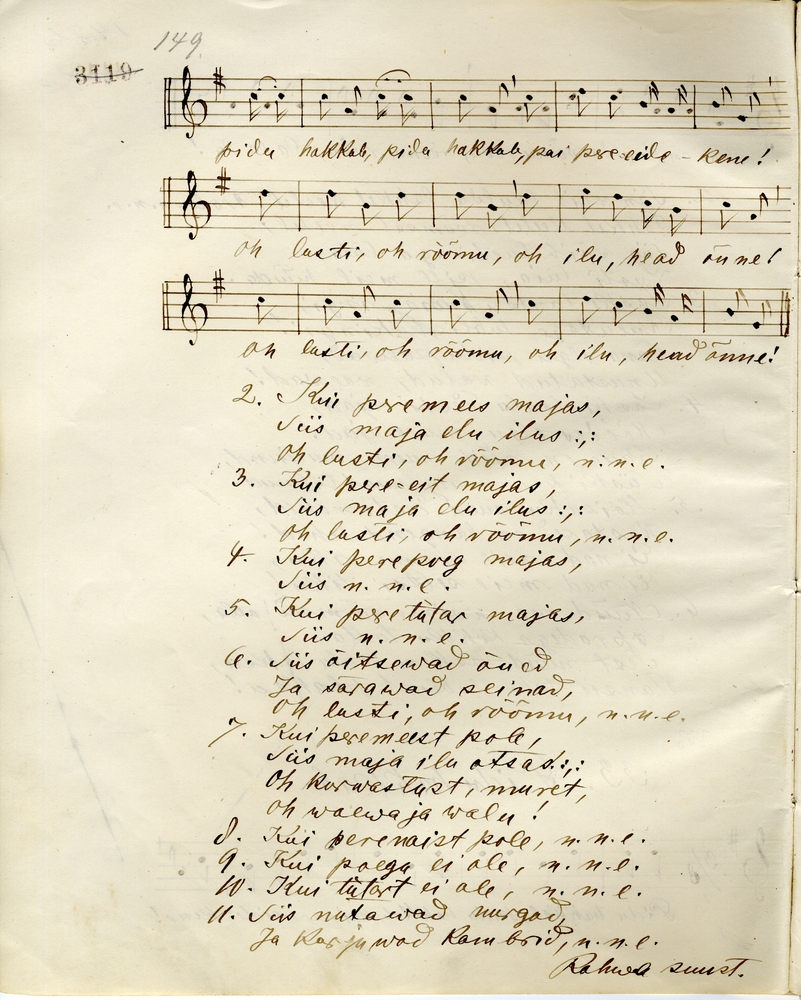 149
3119
pidu hakkab, pidu hakkab, pai pere-eide-kene!
oh lusti, oh rõõmu, oh ilu, head õnne!
oh lusti, oh rõõmu, oh ilu, head õnne!
2. Kui peremees majas,
Siis maja elu ilus :,:
Oh lusti, oh rõõmu, n. n. e.
3. Kui pere-eit majas,
Siis maja elu ilus :,:
Oh lusti, oh rõõmu, n. n. e.
4. Kui perepoeg majas,
Siis n. n. e.
5. Kui peretütar majas,
Siis n. n. e.
6. Siis õitsewad õued
Ja särawad seinad,
Oh lusti, oh rõõmu, n. n. e.
7. Kui peremeest pole,
Siis maja ilu otsas :,:
Oh kurwastust, muret,
Oh waewa ja walu!
8. Kui perenaist pole, n. n. e.
9. Kui poega ei ole, n. n. e.
10. Kui tütart ei ole, n. n. e.
11. Siis nutawad nurgad,
Ja karjuwad kambrid, n. n. e.
Rahwa suust.